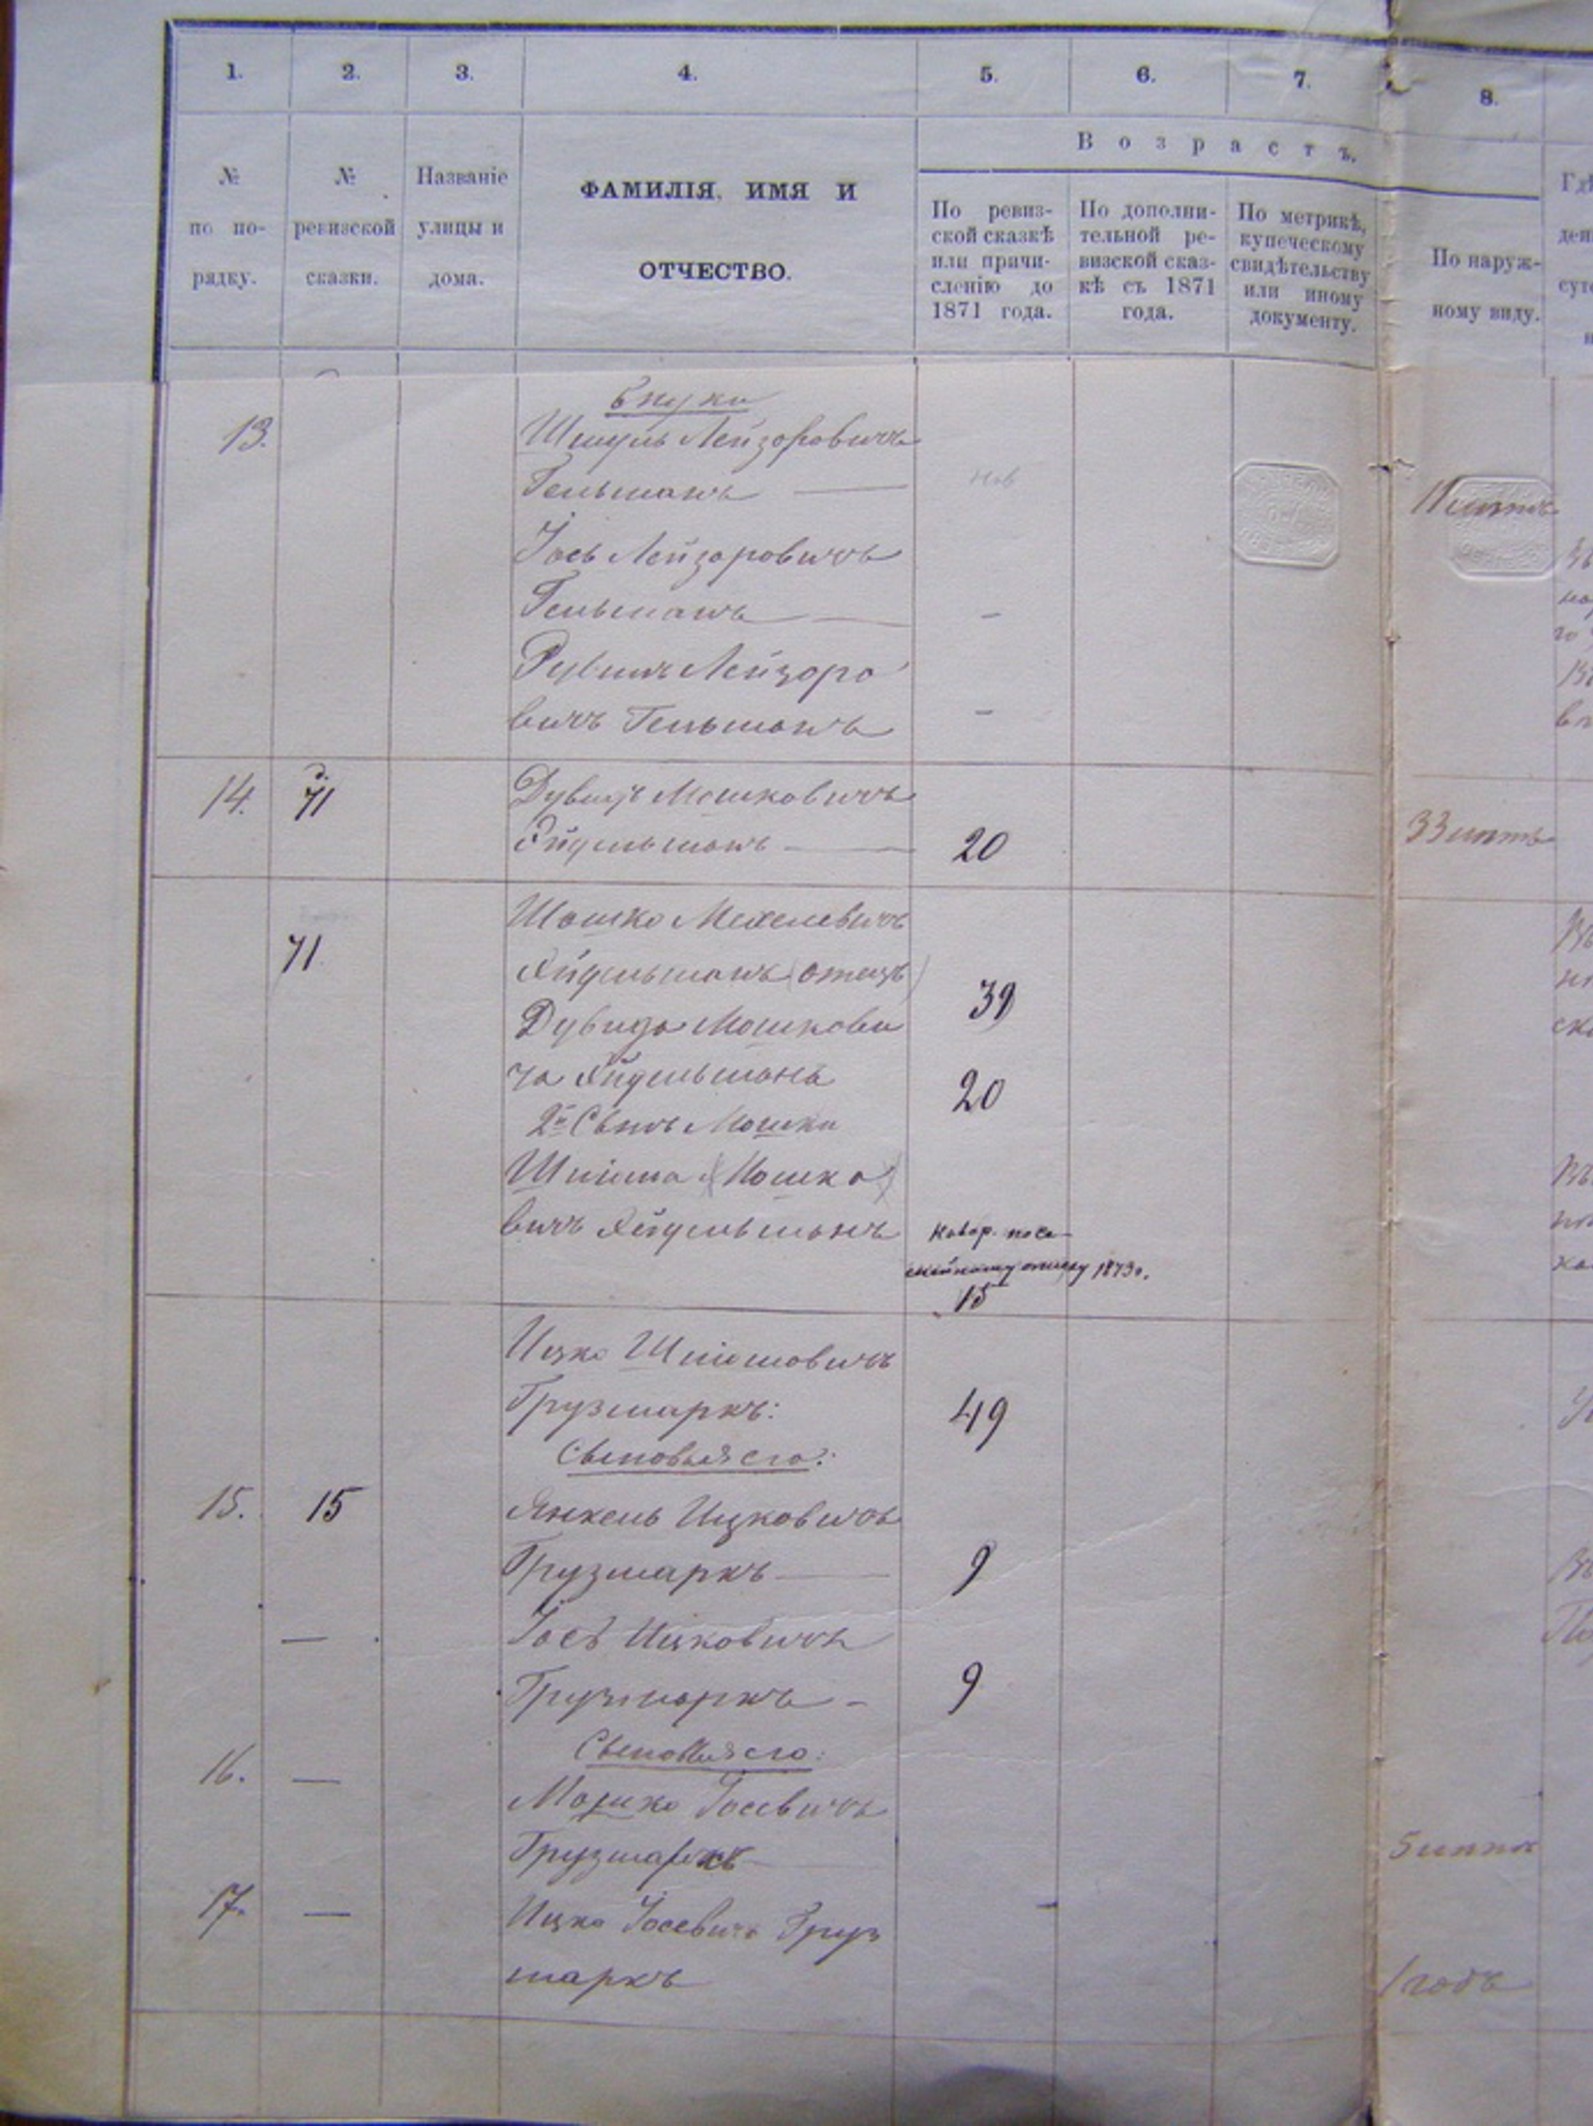 1. 2. 3. 4. 5. 6. 7. 8.
№ по по-рядку.
№ ревизской сказки.
Названіе улицы и дома.
ФАМИЛІЯ, ИМЯ И
ОТЧЕСТВО.
Возрастъ.
По ревиз-
ской сказкѣ
или причи-
сленію до
1871 года.
По дополни-
тельной ре-
визской сказ-
кѣ съ 1871
года.
По метрикѣ,
купеческому
свидѣтельству
или иному
документу.
По наруж-
ному виду.
Внуки
13. Шмуль Лейзоровичъ
Гельманъ — Нов
Іось Лейзоровичъ
Гельманъ — –
Рувинъ Лейзоро
вичъ Гельманъ –
14. 71 Дувидъ Мошковичъ
Яйдельманъ — 20 33 лѣтъ
Мошко Мехелевичъ
71 Яйдельманъ (отецъ) 39
Дувида Мошкови
ча Яйдельмана 20
2й Сынъ Мошки
Шліома (Мошко)
вичъ Яйдельманъ Новор. по се-
мейному списку 1873г.
15
Ицко Шліомовичъ
Грузмаркъ: 49
Сыновья его:
15. 15 Янкель Ицковичъ
Грузмаркъ — 9
— Іось Ицковичъ
Грузмаркъ – 9
Сыновья его:
16. — Мошко Іосевичъ
Грузмаркъ 5 лѣтъ
17. — Ицко Іосевичъ Груз –
маркъ 1 годъ